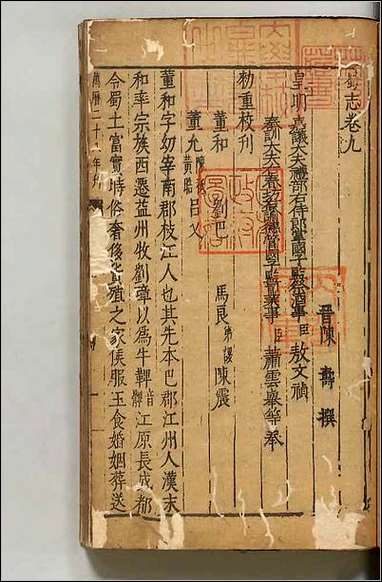 蜀志卷九
晉陳壽撰
皇明嘉議大夫禮部右侍郎掌國子監祭酒事臣敖文禎
承訓大夫右春坊右諭德管國子監司業事臣蕭雲舉等奉
勅重校刊
董和 劉巴 馬良弟謖 陳震
董允陳祗黃皓 呂乂
董和字幼宰南郡枝江人也其先本巴郡江州人漢末
和率宗族西遷益州牧劉璋以爲牛鞞音髀江原長成都
令蜀土富實時俗奢侈貨殖之家侯服玉食婚姻葬送
萬曆二十年刊